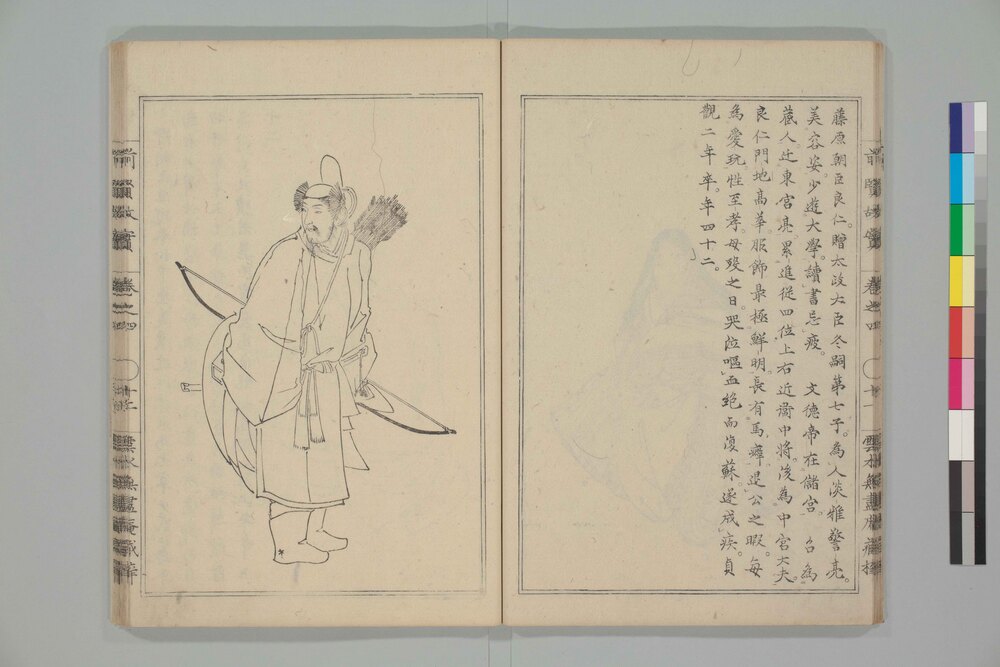 藤原朝臣良仁。贈太政大臣冬嗣第七子。為人淡雅警亮。
美容姿。少遊大學。讀書忘疲。　文德帝在儲宮。　召為
蔵人。辻東宮亮。累進從四位上右近衛中將。後為中宮大夫。
良仁門地高華。服飾最極鮮明。長有馬癖。退公之暇。每
為愛玩。性至孝。母歿之日。哭泣嘔血。絶而復蘇。遂成疾。貞
觀二年卒。年四十二。
前賢故實
卷之四
十一
前賢故實
卷之四